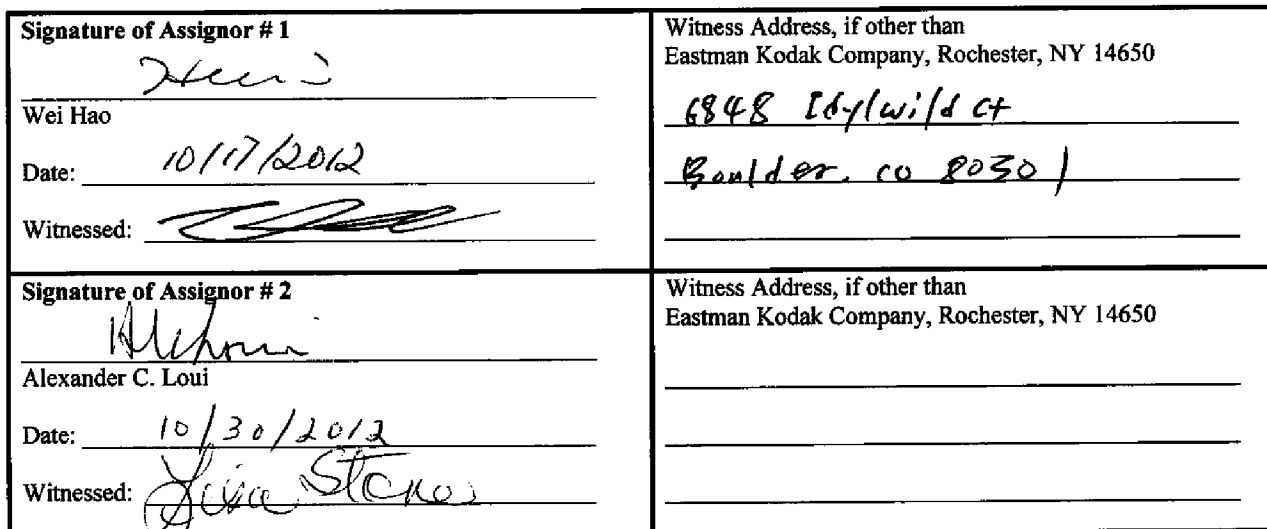 Signature of Assignor # 1
Wei Hao
Date: 10/17/2012
Witnessed:
Witness Address, if other than
Eastman Kodak Company, Rochester, NY 14650
6848 Idylwild Ct
Boulder, CO 80301
Signature of Assignor # 2
Alexander C. Loui
Date: 10/30/2012
Witnessed: Lisa
Witness Address, if other than
Eastman Kodak Company, Rochester, NY 14650